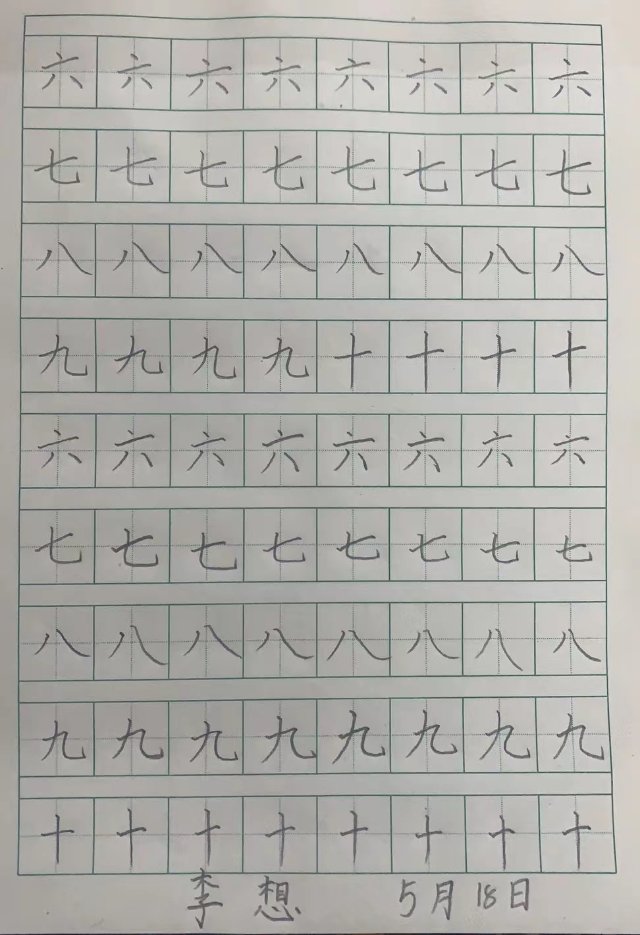 六六六六六六六六
七七七七七七七七
八八八八八八八八
九九九九十十十十
六六六六六六六六
七七七七七七七七
八八八八八八八八
九九九九九九九九
十十十十十十十十
李想 5月18日